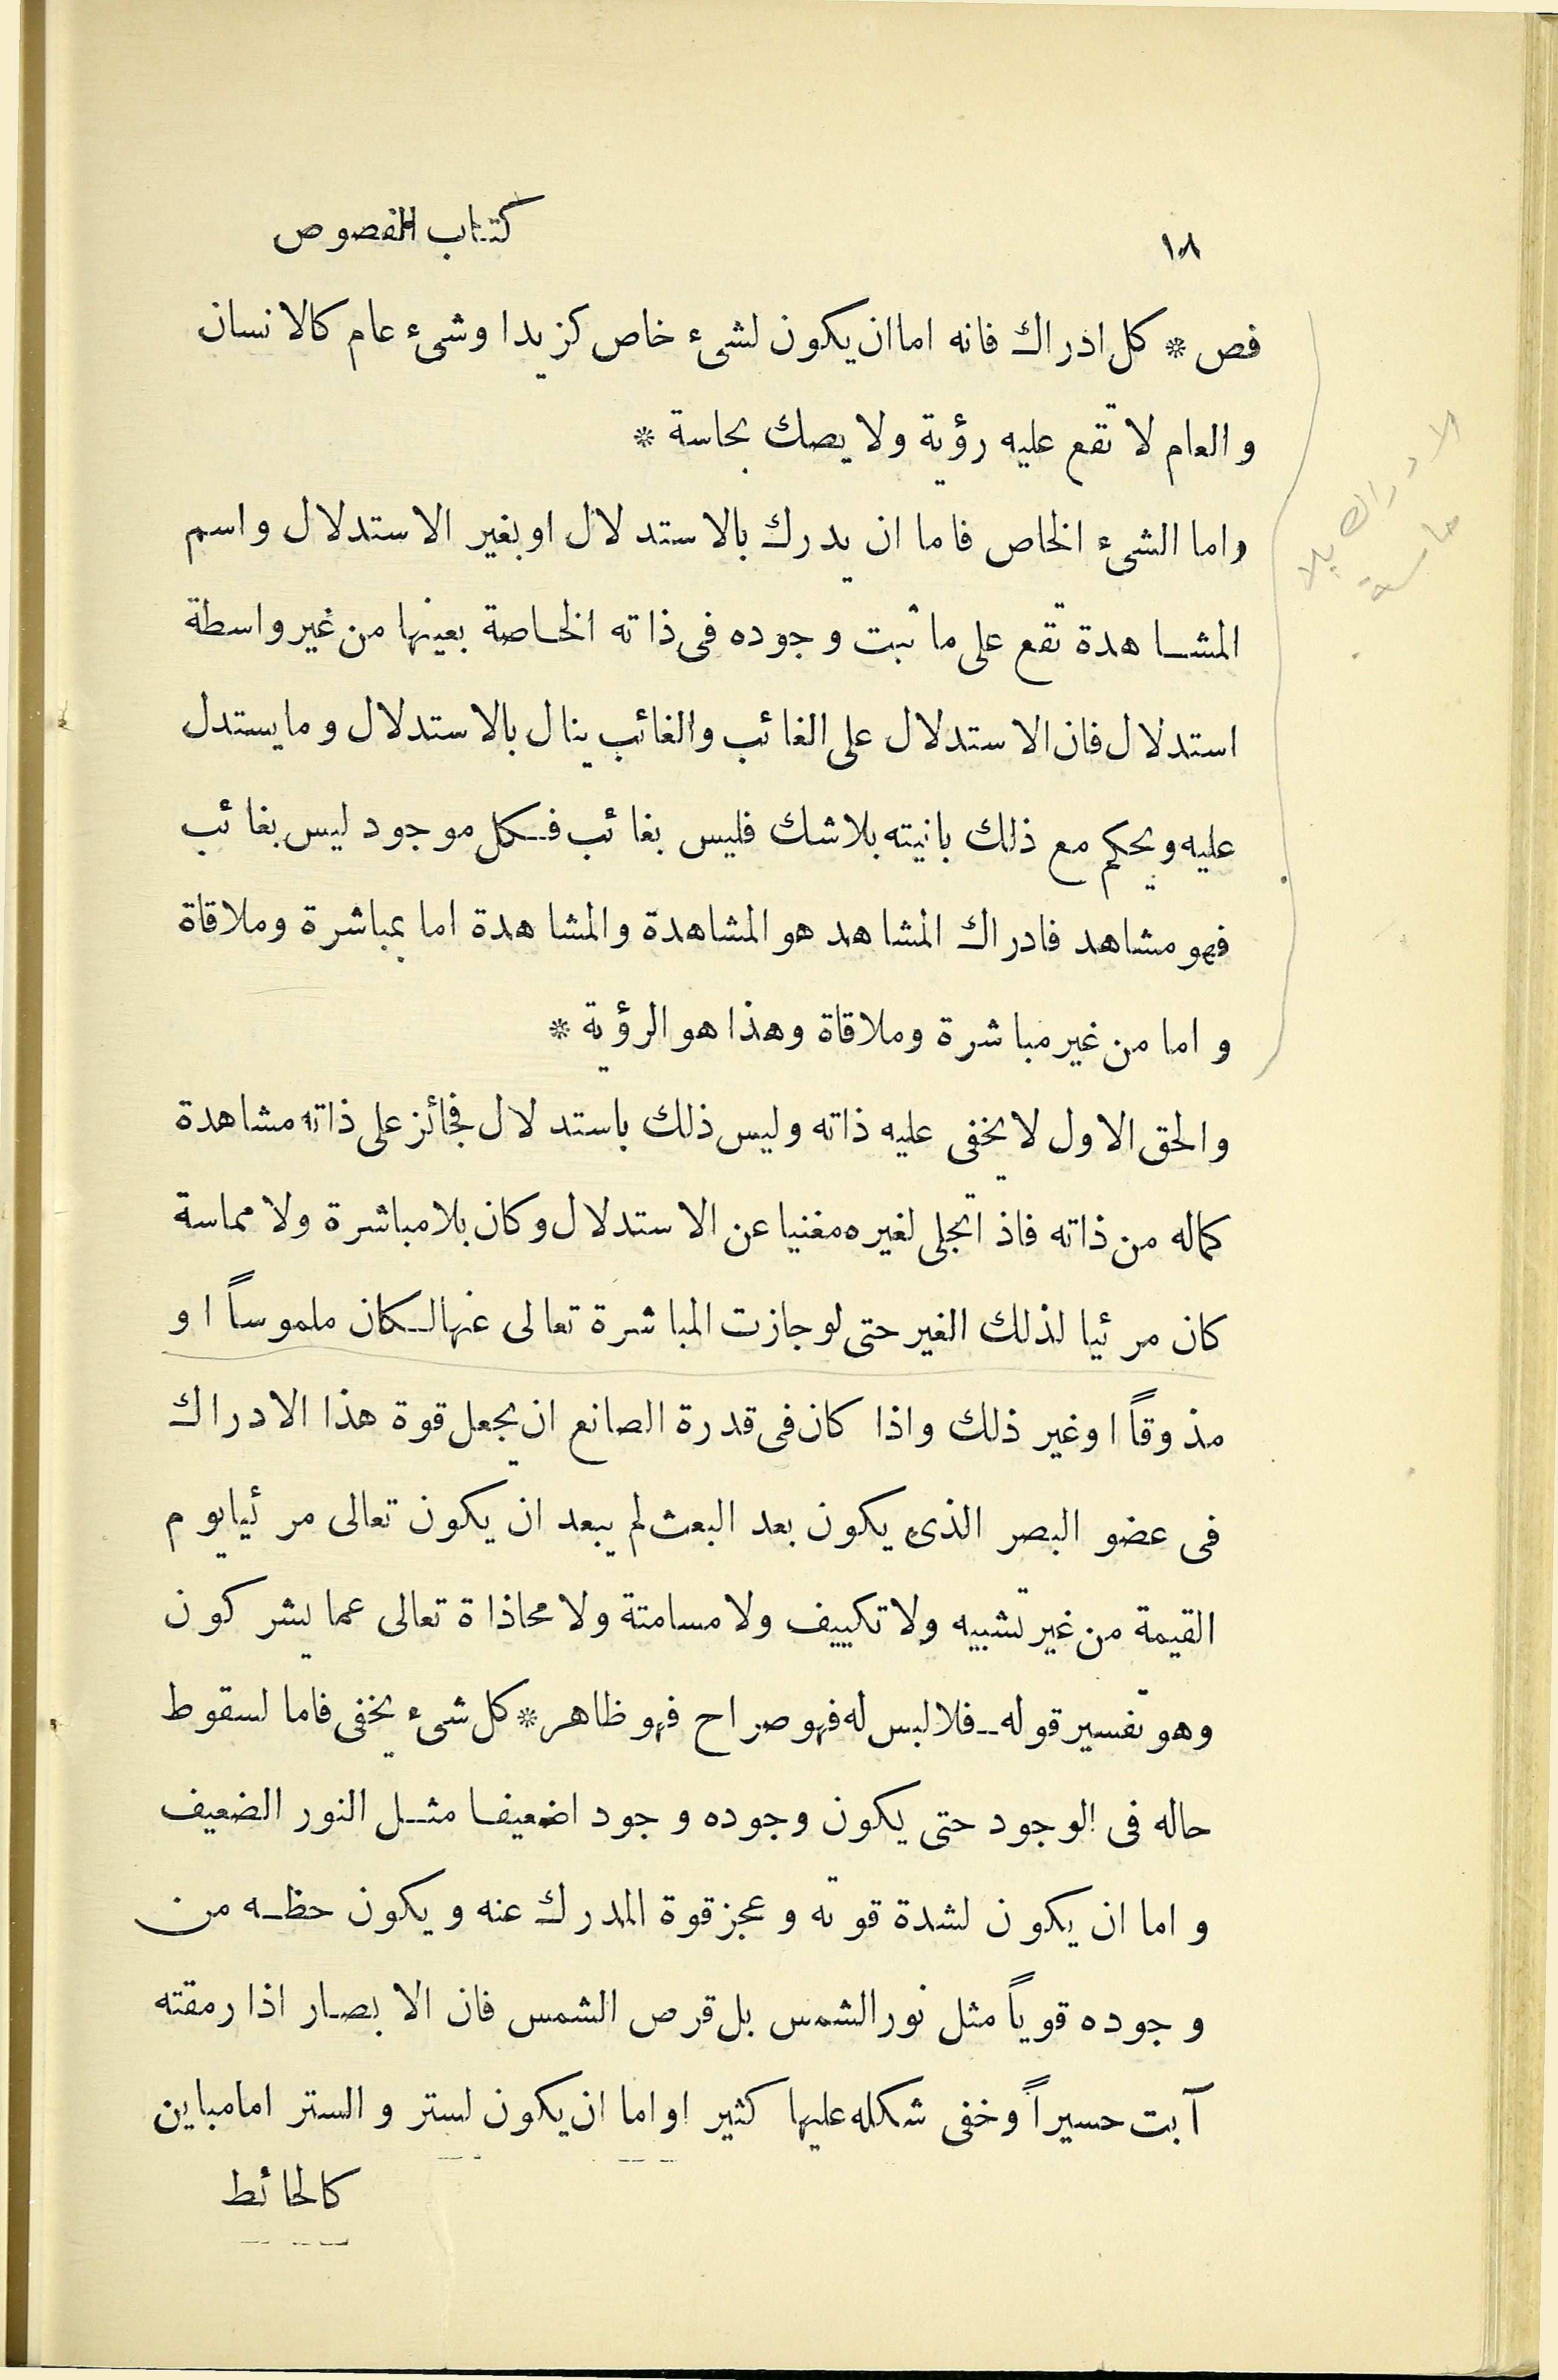 ١٨
كتاب الفصوص
فص * كل ادراك فانه اما ان يكون لشىء خاص كزيد او شىء عام كالانسان
والعام لا تقع عليه رؤية ولا يصك بحاسة *
واما الشىء الخاص فاما ان يدرك بالاستدلال او بغير الاستدلال واسم
المشاهدة تقع على ما ثبت وجوده فى ذاته الخاصة بعينها من غير واسطة
استدلال فان الاستدلال على الغائب والغائب ينال بالاستدلال وما يستدل
عليه ويحكم مع ذلك بانيته بلا شك فليس بغائب فكل موجود ليس بغائب
فهو مشاهد فادراك المشاهد هو المشاهدة والمشاهدة اما بمباشرة وملاقاة
واما من غير مباشرة وملاقاة وهذا هو الرؤية *
والحق الاول لا يخفى عليه ذاته وليس ذلك باستدلال فجائز على ذاته مشاهدة
كماله من ذاته فاذا تجلى لغيره مغنيا عن الاستدلال وكان بلا مباشرة ولا مماسة
كان مرئيا لذلك الغير حتى لو جازت المباشرة تعالى عنها لكان ملموساً او
مذوقاً او غير ذلك واذا كان فى قدرة الصانع ان يجعل قوة هذا الادراك
فى عضو البصر الذى يكون بعد البعث لم يبعد ان يكون تعالى مرئيا يوم
القيمة من غير تشبيه ولا تكييف ولا مسامتة ولا محاذاة تعالى عما يشركون
وهو تفسير قوله ـ فلا لبس له فهو صراح فهو ظاهر * كل شىء يخفى فاما لسقوط
حاله فى الوجود حتى يكون وجوده وجودا ضعيفا مثل النور الضعيف
واما ان يكون لشدة قوته وعجز قوة المدرك عنه ويكون حظه من
وجوده قوياً مثل نور الشمس بل قرص الشمس فان الابصار اذا رمقته
آبت حسيراً وخفى شكله عليها كثير ا واما ان يكون لستر والستر اما مباين
كالحائط
الادراك بلا
حاسة